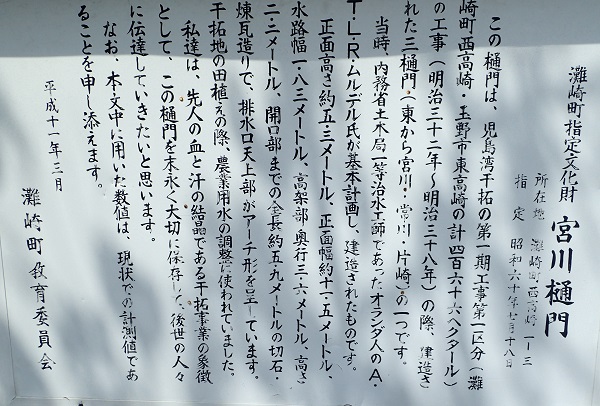 灘崎町指定文化財
宮川樋門
所在地 灘崎町西高崎一ー三
指定 昭和六十年七月十八日
この樋門は、児島湾干拓の第一期工事第一区分(灘
崎町西高崎・玉野市東高崎の計四百六十六ヘクタール)
の工事(明治三十二年~明治三十八年)の際、建造さ
れた三樋門(東から宮川・常川・片崎)の一つです。
当時、内務省土木局一等治水工師であったオランダ人のA・
T・L・R・ムルデル氏が基本計画し、建造されたものです。
正面高さ約五・三メートル、正面幅約十一・五メートル、
水路幅一・八三メートル、高架部奥行三・六メートル、高さ
二・二メートル、開口部までの全長約五・九メートルの切石・
煉瓦造りで、排水口天上部がアーチ形を呈しています。
干拓地の田植えの際、農業用水の調整に使われていました。
私達は、先人の血と汗の結晶である干拓事業の象徴
として、この樋門を末永く大切に保存し、後世の人々
に伝達していきたいと思います。
なお、本文中に用いた数値は、現状での計測値であ
ることを申し添えます。
平成十一年三月
灘崎町教育委員会